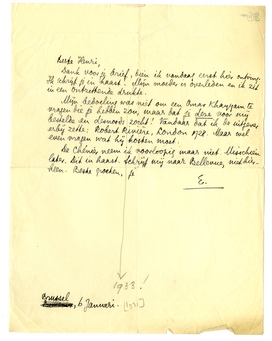 Beste Henri,
Dank voor je brief, dien ik vandaag eerst hier ontving.
Ik schrijf je in haast! Mijn moeder is overleden en ik zit
in een ontzettende drukte.
Mijn bedoeling was niet om een Omar Khayyam te
vragen die je hebben zou, maar dat je deze voor mij
bestelde en desnoods zocht! Vandaar dat ik de uitgever
erbij zette: Robert Rivière, London 1928. Maar wel
even vragen wat hij kosten moet.
De Chénier neem ik voorloopig maar niet. Misschien
later. Dit in haast. Schrijf mij naar Bellevue, niet hier-
heen. Beste groeten, je
E.
1933!
Brussel, 6 Januari.